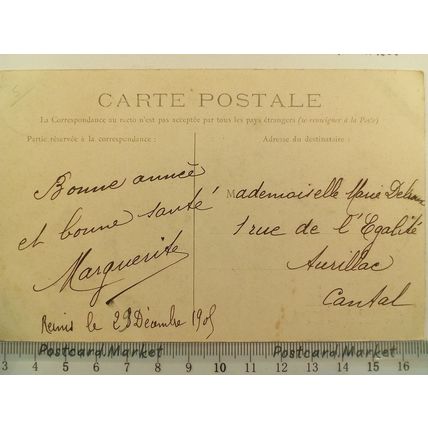 CARTE POSTALE
La Correspondance au recto n'est pas acceptée par tous les pays étrangers (se renseigner à la Poste)
Partie réservée à la correspondance :
Adresse du destinataire :
Bonne année
et bonne santé
Marguerite
Reims le 29 Décembre 1905
Mademoiselle Marie
1 rue de l'Egalité
Aurillac
Cantal
Postcard Market Postcard Market
3 4 5 6 7 8 9 10 11 12 13 14 15 16